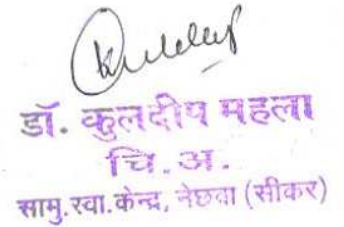 डॉ. कुलदीप महला
चि. अ.
सामु. स्वा. केन्द्र, नेछवा (सीकर)